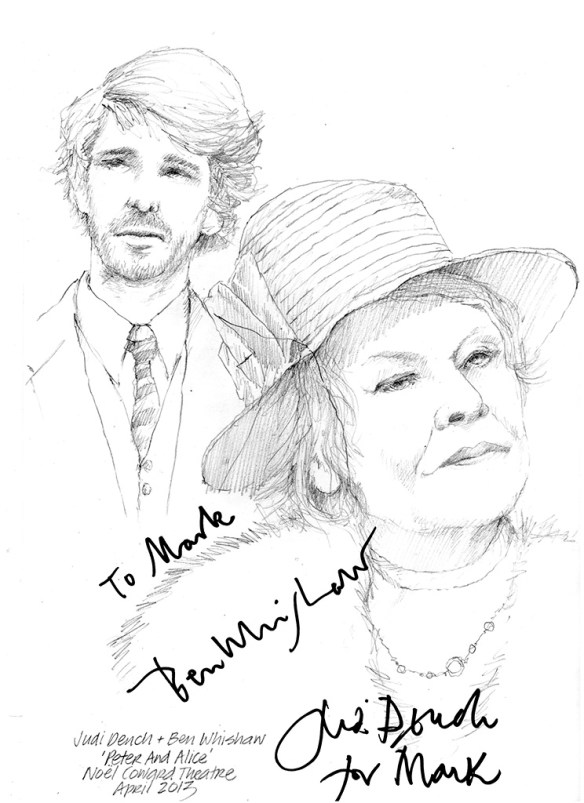 To Mark
Ben Whishaw
Judi Dench
for Mark
Judi Dench + Ben Whishaw
'Peter And Alice'
Noel Coward Theatre
April 2013